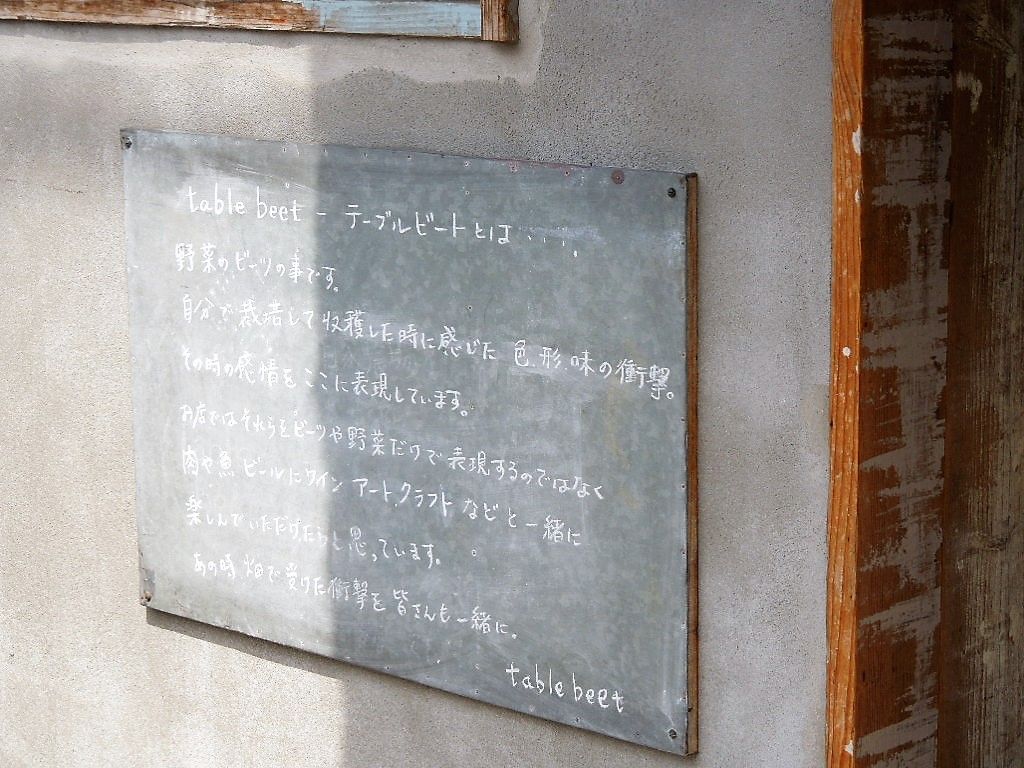 table beet - テーブルビートとは....
野菜のビーツの事です。
自分で栽培して収穫した時に感じた 色.形.味の衝撃。
その時の感情をここに表現しています。
お店ではそれらをビーツや野菜だけで表現するのではなく
肉や魚 ビールにワイン アート,クラフト などと一緒に
楽しんでいただけたらと思っています。
あの時 畑で受けた衝撃を 皆さんも一緒に。
table beet